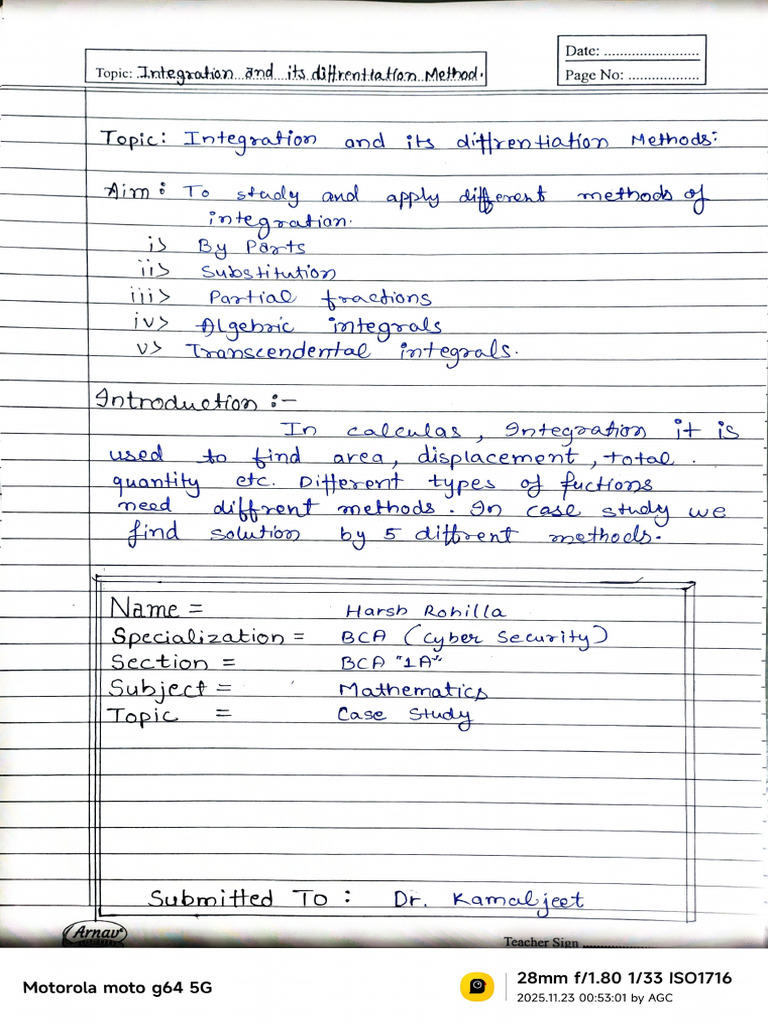 Topic: Integration and its diffrentiation Method.
Date: ........................
Page No: ..................
Topic: Integration and its diffrentiation Methods:
Aim: To study and apply different methods of
integration.
i> By Parts
ii> Substitution
iii> Partial fractions
iv> Algebric integrals
v> Transcendental integrals.
Introduction :-
In calculas, Integration it is
used to find area, displacement, total.
quantity etc. Different types of fuctions
need diffrent methods. In case study we
find solution by 5 diffrent methods.
Name = Harsh Rohilla
Specialization = BCA (Cyber Security)
Section = BCA "1A"
Subject = Mathematics
Topic = Case Study
Submitted To : Dr. Kamaljeet
Arnav
Teacher Sign ....................
Motorola moto g64 5G
28mm f/1.80 1/33 ISO1716
2025.11.23 00:53:01 by AGC